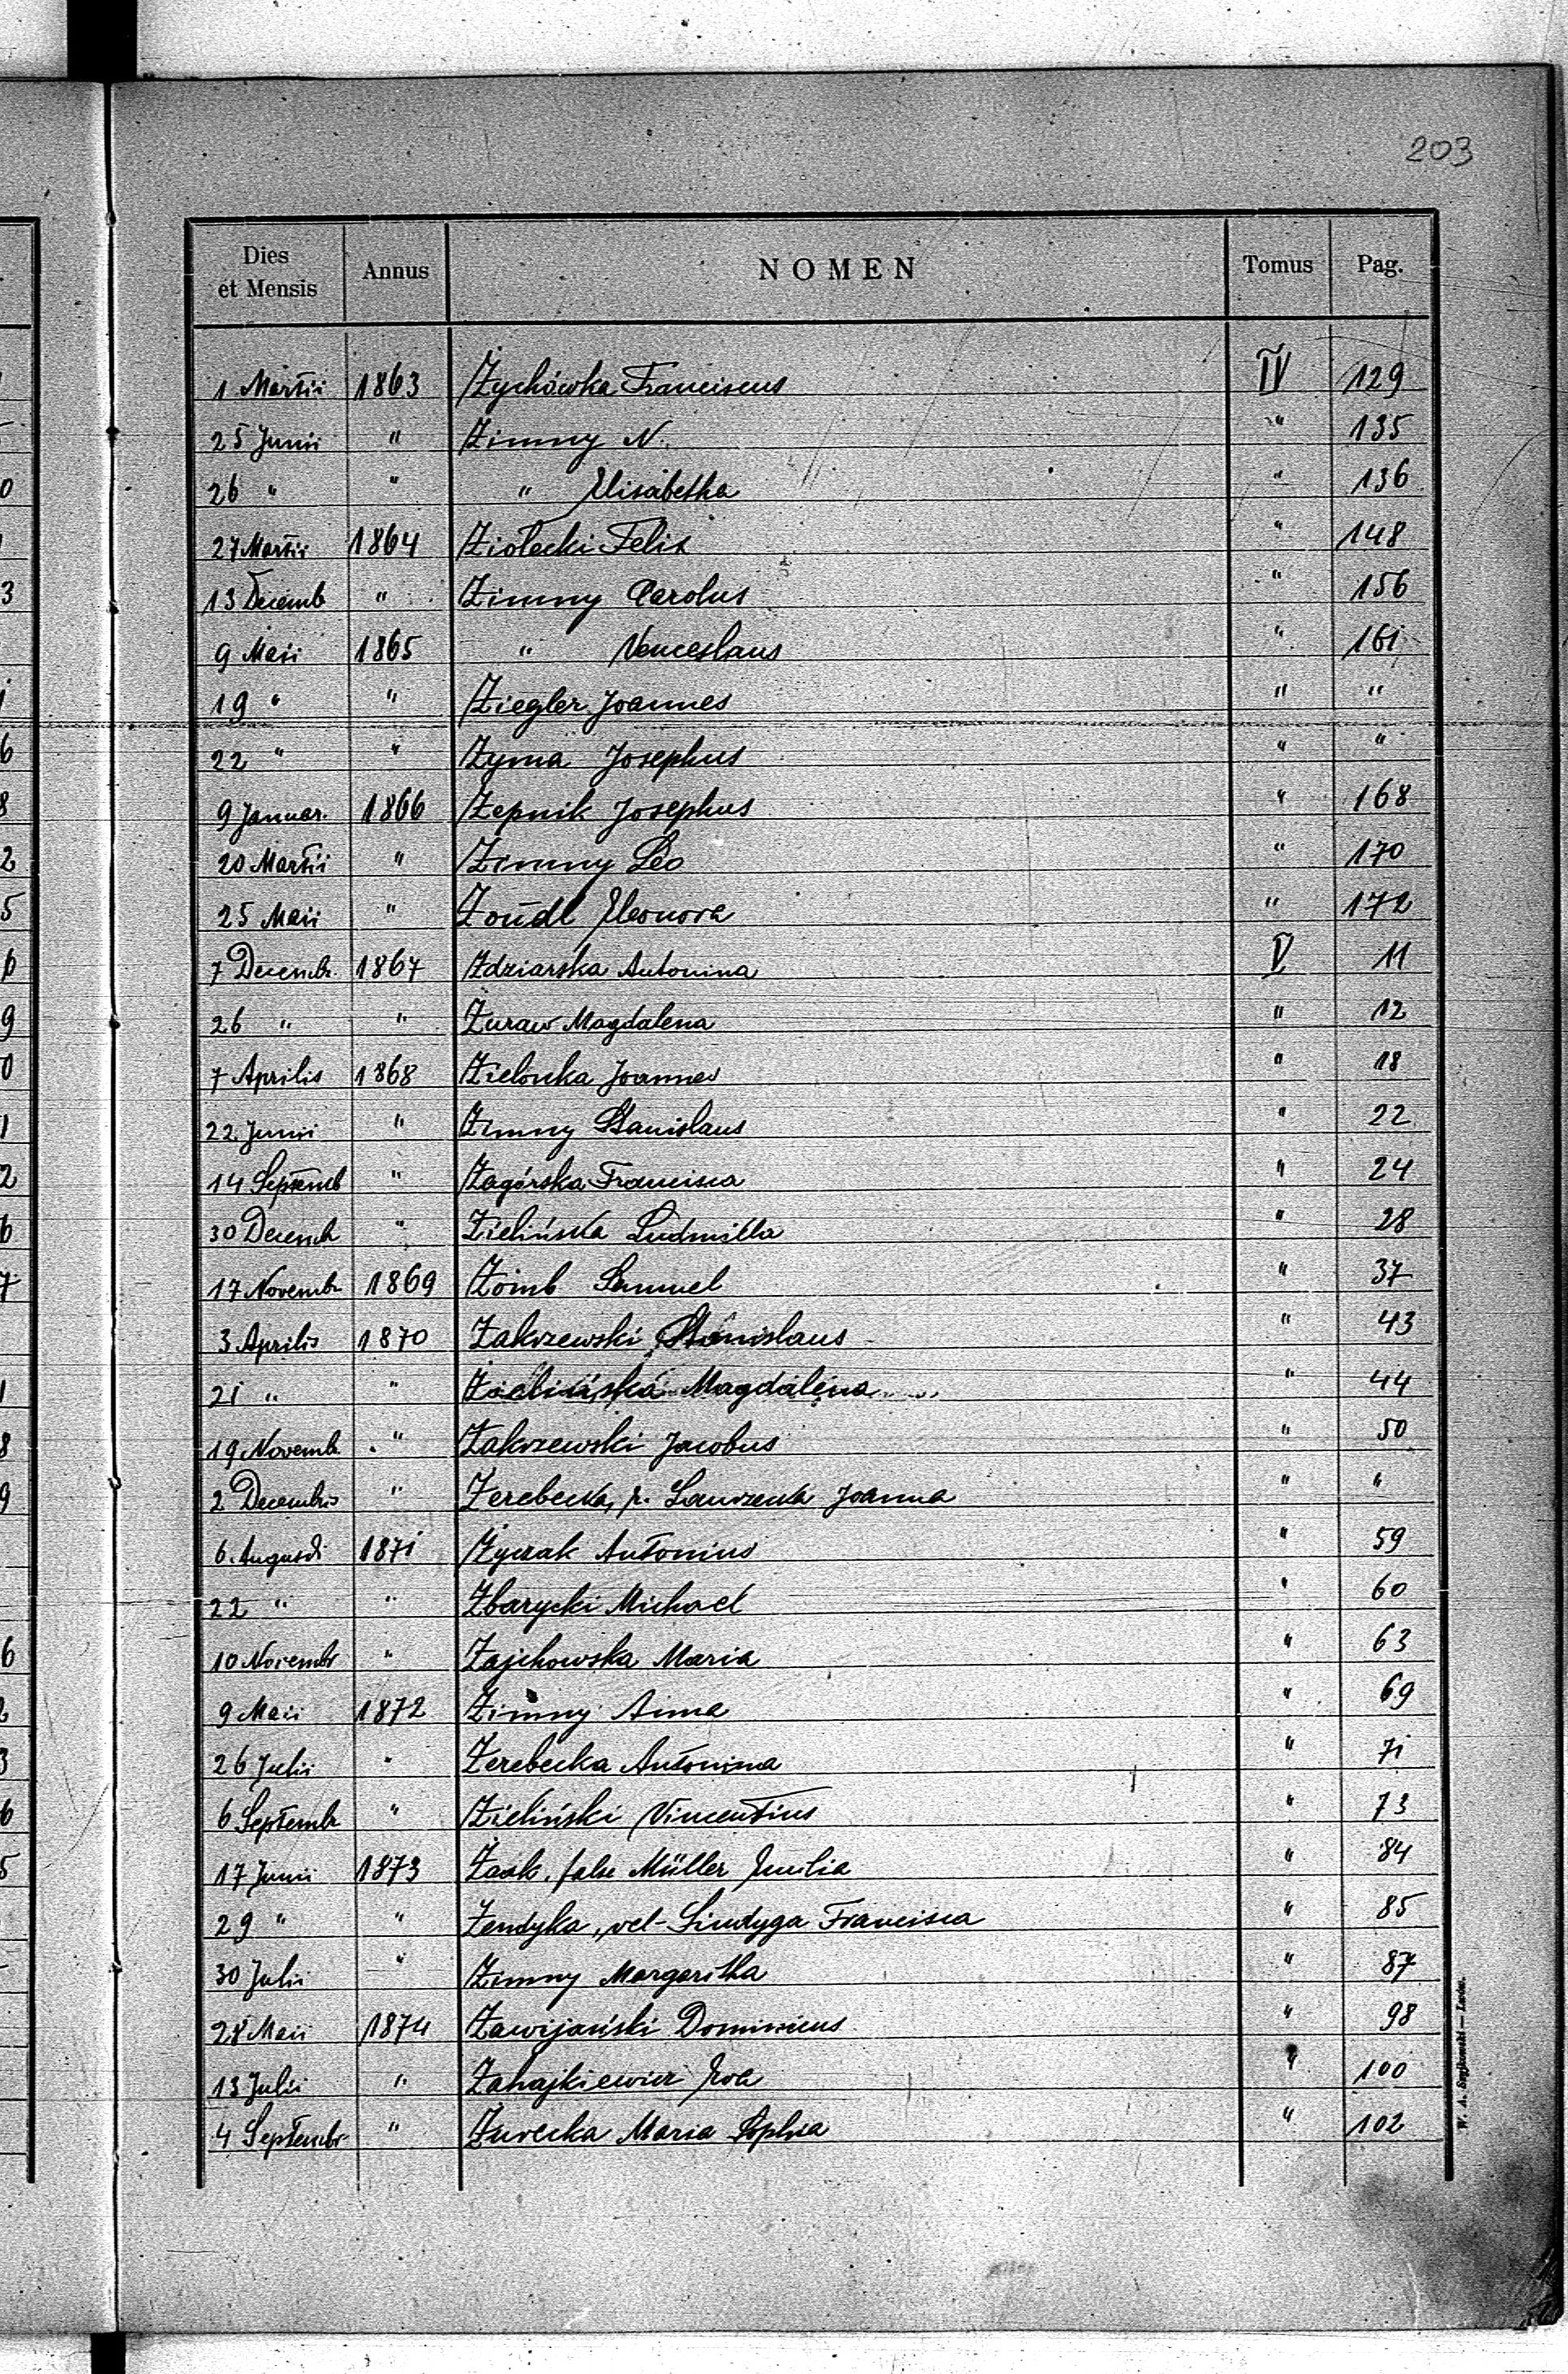 203
Dies et Mensis Annus NOMEN Tomus Pag.
1 Martii 1863 Żychówka Franciscus IV 129
25 Junii " Zimny N. " 135
26 " " " Elisabetha " 136
27 Martii 1864 Ziołecki Felix " 148
13 Decemb " Zimny Carolus " 156
9 Maii 1865 " Venceslaus " 161
19 " " Ziegler Joannes " "
22 " " Zyma Josephus " "
9 Januar. 1866 Zepnik Josephus " 168
20 Martii " Zimny Leo " 170
25 Maii " Eleonora " 172
7 Decembr. 1867 Zdziarska Antonina V 11
26 " " Żuraw Magdalena " 12
7 Aprilis 1868 Zielonka Joannes " 18
22. Junii " Zimny Stanislaus " 22
14 Septemb " Zagórska Francisca " 24
30 Decemb " Zielińska Ludmilla " 28
17 Novembr 1869 Samuel " 37
3 Aprilis 1870 Zakrzewski Stanislaus " 43
21 " " Magdalena " 44
19 Novemb. " Zakrzewski Jacobus " 50
2 Decembris " Żerebecka, r. Joanna " "
6. Augusti 1871 Życzak Antonius " 59
22 " " Zbarycki Michael " 60
10 Novembr " Zajchowska Maria " 63
9 Maii 1872 Zimny Anna " 69
26 Julii " Żerebecka Antonina " 71
6 Septembr " Zieliński Vincentius " 73
17 Junii 1873 Żask, false Müller Emilia " 84
29 " " Zendyka, vel Sindyga Francisca " 85
30 Julii " Zimny Margaritha " 87
28 Maii 1874 Zawijański Dominicus " 98
13 Julii " Zahajkiewicz Eva " 100
4 Septembr " Żurecka Maria Sophia " 102